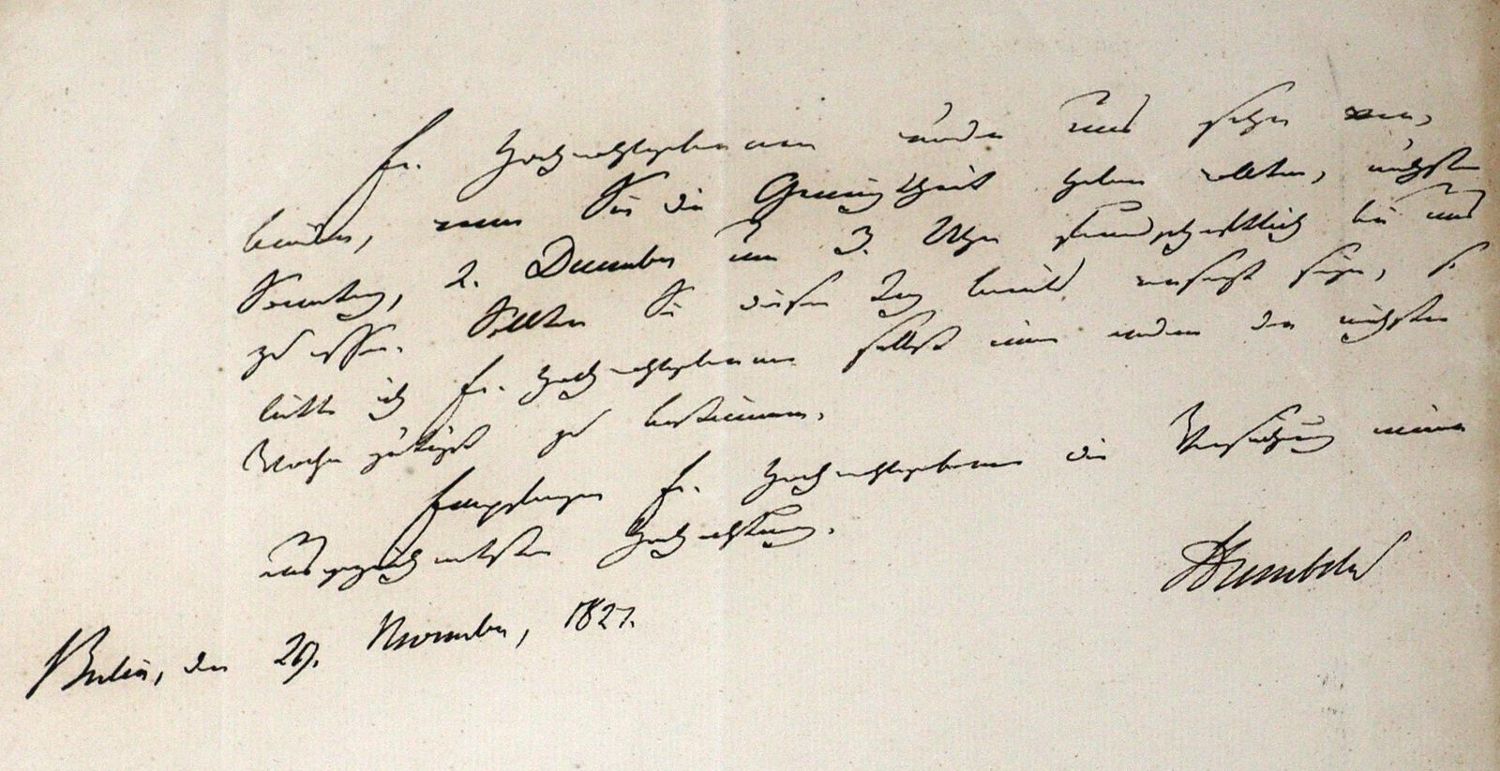 Ew. Hochwohlgeboren würden uns sehr ver-
binden, wenn Sie die Gewogenheit haben wollten, nächsten
Sonntag, 2. December um 3. Uhr freundschaftlich bei uns
zu essen. Sollten Sie diesen Tag bereits versagt seyn, so
bitte ich Ew. Hochwohlgeboren selbst einen andern der nächsten
Woche gütigst zu bestimmen.
Empfangen Ew. Hochwohlgeboren die Versicherung meiner
ausgezeichnetsten Hochachtung.
Humboldt
Berlin, den 29. November, 1827.